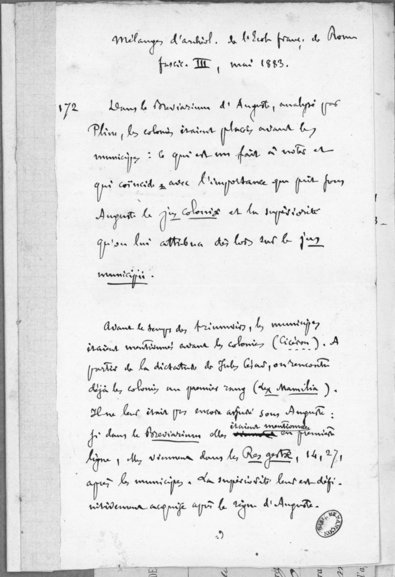 Mélanges d'archéol. de l'École franç. de Rome
fascic. III, mai 1883.
172 Dans le Breviarium d'Auguste, analysé par
Pline, les colonies étaient placées avant les
municipes : ce qui est un fait à noter et
qui coïncide avec l'importance que prit sous
Auguste le jus coloniæ et la supériorité
qu'on lui attribua dès lors sur le jus
municipii.
Avant le temps des triumvirs, les municipes
étaient mentionnés avant les colonies (Cicéron). A
partir de la dictature de Jules César, on rencontre
déjà les colonies au premier rang (Lex Mamilia).
Il ne leur était pas encore assuré sous Auguste :
si dans le Breviarium elles étaient mentionnées en première
ligne, elles viennent dans les Res gestæ, 14, 27,
après les municipes. La supériorité leur est défi-
nitivement acquise après le règne d'Auguste.